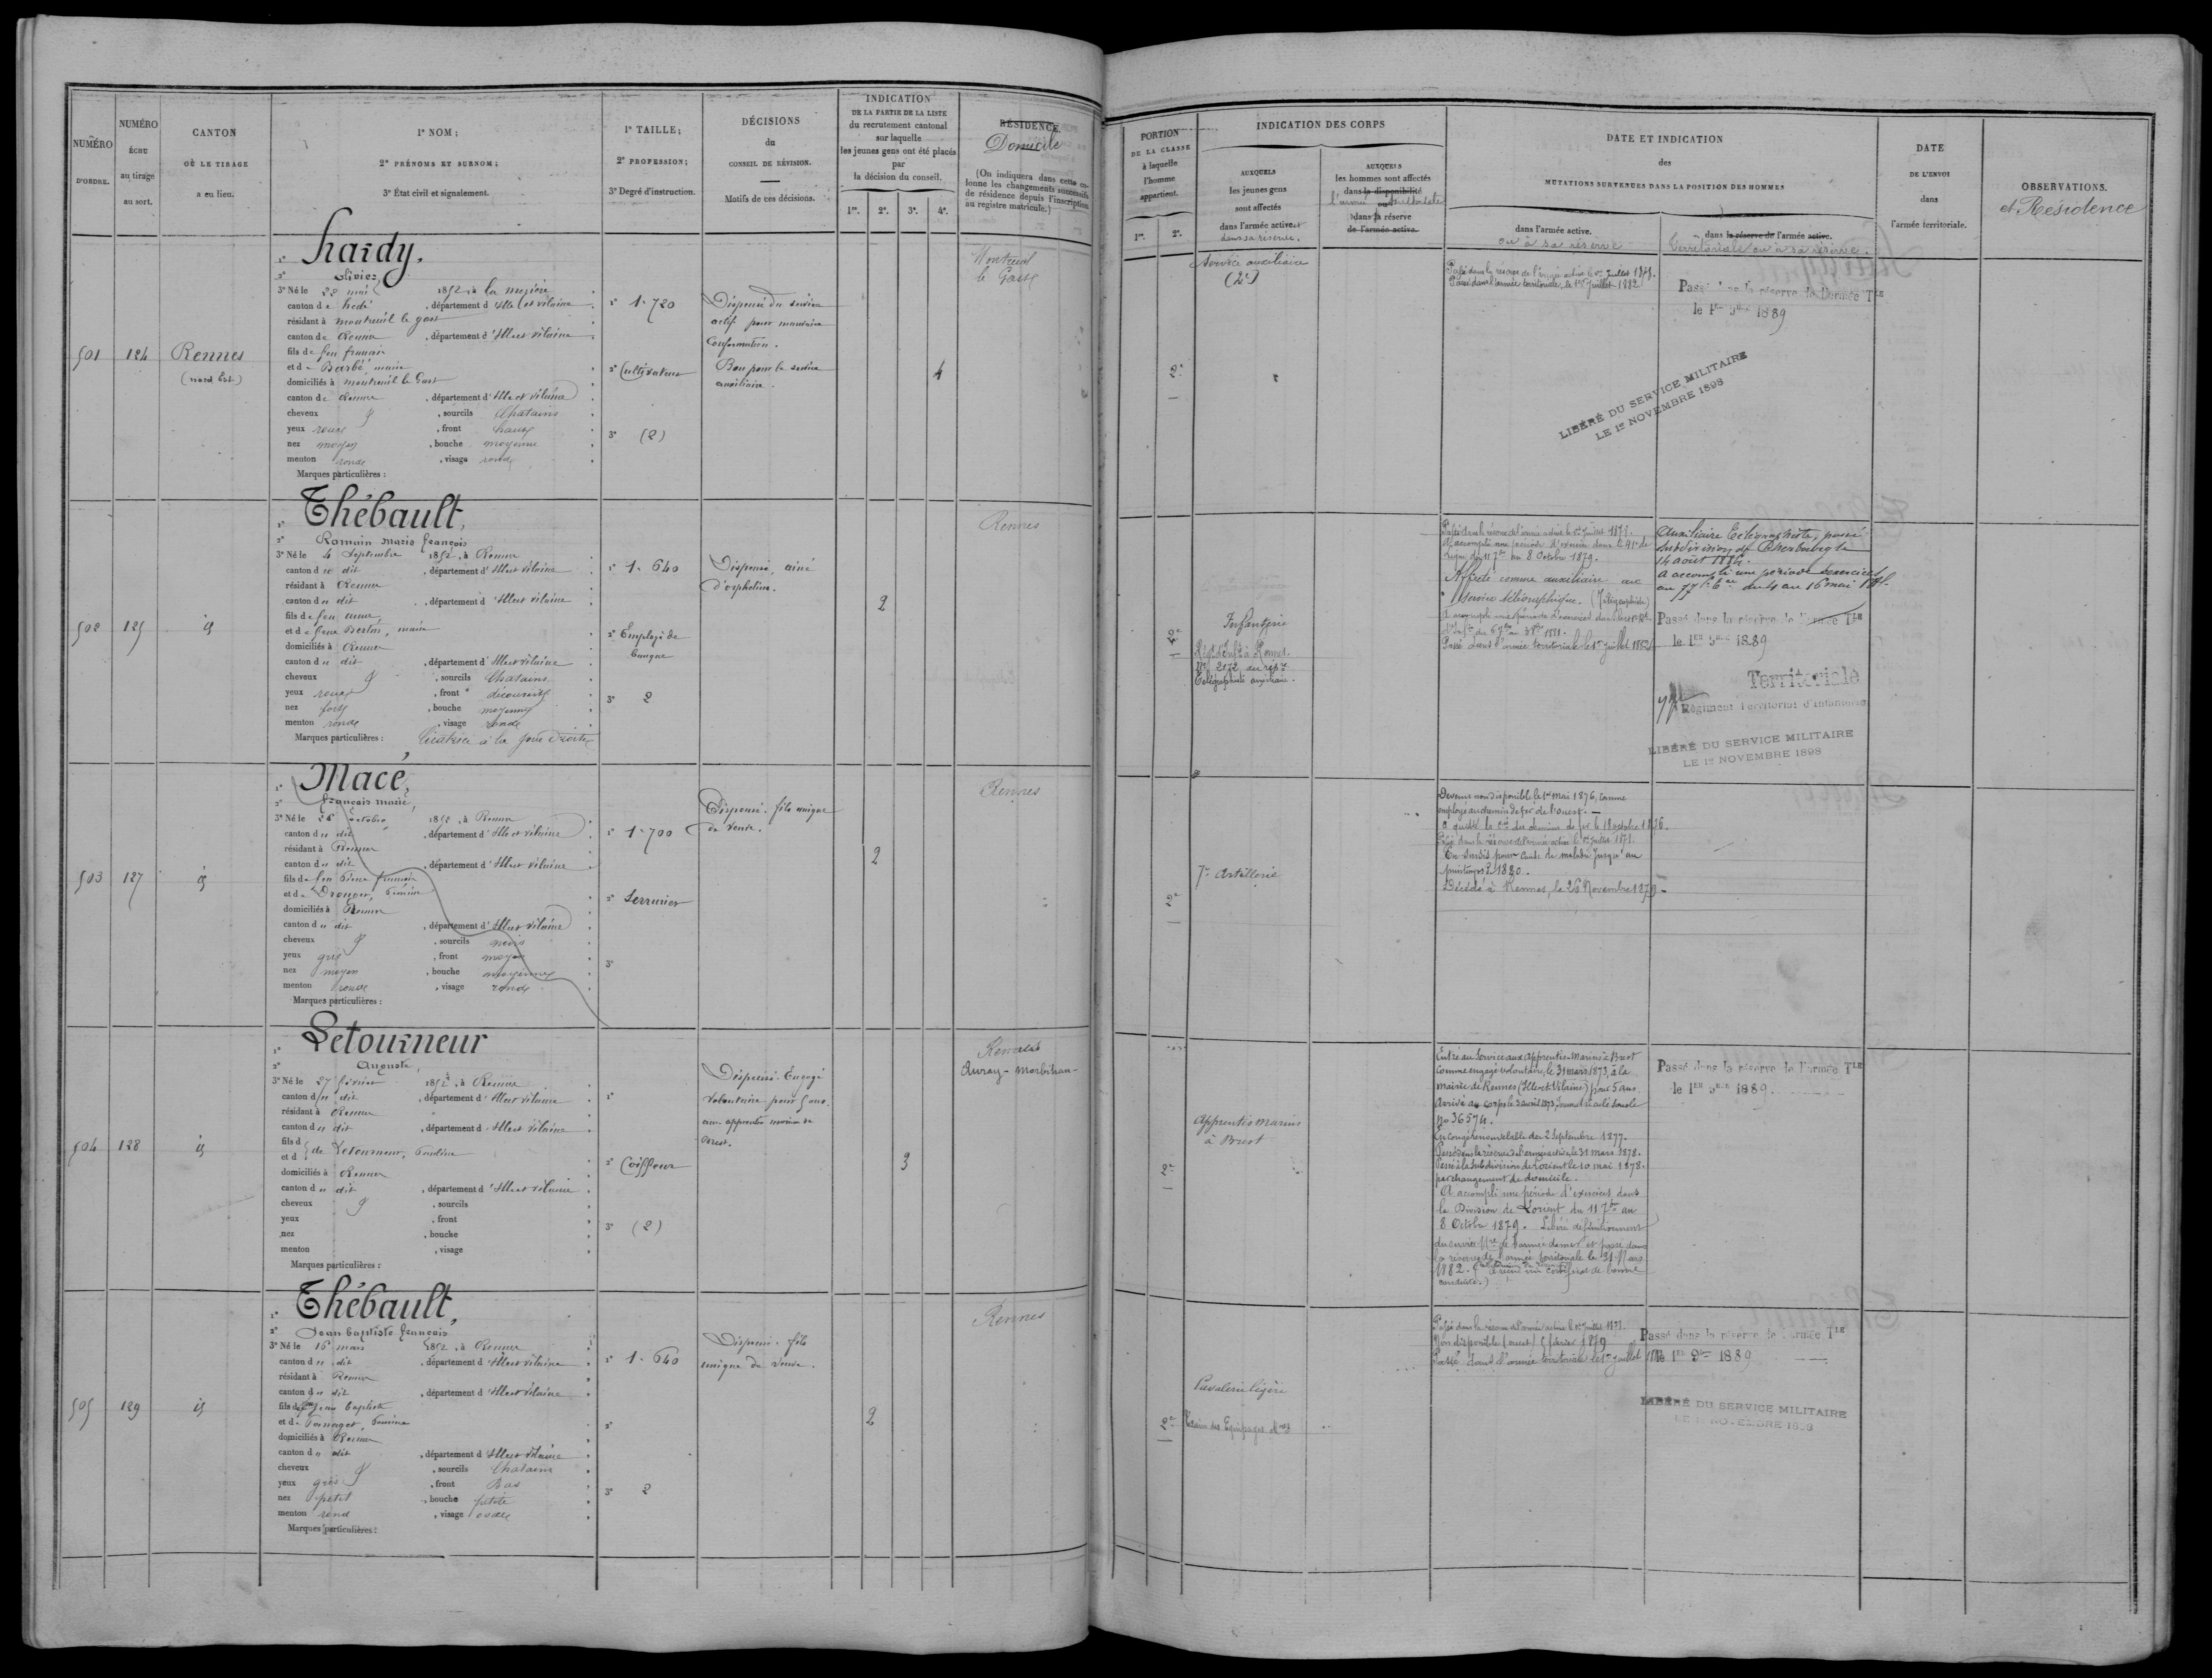 NUMÉRO
D'ORDRE.
NUMÉRO
ÉCHU
au tirage
au sort.
CANTON
OÙ LE TIRAGE
a eu lieu.
1° NOM ;
2° PRÉNOMS ET SURNOM ;
3° État civil et signalement.
1° TAILLE ;
2° PROFESSION ;
3° Degré d'instruction.
DÉCISIONS
du
CONSEIL DE RÉVISION.
Motifs de ces décisions.
INDICATION
DE LA PARTIE DE LA LISTE
du recrutement cantonal
sur laquelle
les jeunes gens ont été placés
par
la décision du conseil.
1re. 2e. 3e. 4e.
RÉSIDENCE.
Domicile
(On indiquera dans cette co-
lonne les changements successifs
de résidence depuis l'inscription
au registre matricule.)
PORTION
DE LA CLASSE
à laquelle
l'homme
appartient.
1re. 2e.
INDICATION DES CORPS
AUXQUELS
les jeunes gens
sont affectés
dans l'armée active et
dans sa réserve.
AUXQUELS
les hommes sont affectés
dans la disponibilité
l'armée territoriale
ou
dans la réserve
de l'armée active.
DATE ET INDICATION
des
MUTATIONS SURVENUES DANS LA POSITION DES HOMMES
dans l'armée active.
ou à sa réserve
dans la réserve de l'armée active.
Territoriale ou à sa réserve.
DATE
DE L'ENVOI
dans
l'armée territoriale.
OBSERVATIONS.
et Résidence
501 124 Rennes
(nord Est)
1° hardy.
2° olivier
3° Né le 22 mai 1852, à la mezière
canton de hedé, département d'Ille et vilaine
résidant à montreuil le gast
canton de Rennes, département d'Ille et vilaine
fils de feu françois
et de Barbé, marie
domiciliés à montreuil le Gast
canton de Rennes, département d'Ille et vilaine
cheveux , sourcils Chatains
yeux roux, front haut
nez moyen, bouche moyenne
menton rond, visage rond
Marques particulières :
1° 1.720
2° Cultivateur
3° (2)
Dispensé du service
actif pour mauvaise
Conformation.
Bon pour le service
auxiliaire.
4
Montreuil
le Gast
2e
Service auxiliaire
(2e)
Passé dans la réserve de l'armée active le 1er Juillet 1878.
Passé dans l'armée territoriale, le 1er Juillet 1882
Passé dans la réserve de l'armée Tle
le 1er 9bre 1889
LIBÉRÉ DU SERVICE MILITAIRE
LE 1er NOVEMBRE 1898
502 125 id
1° Thébault,
2° Romain Marie françois
3° Né le 4 Septembre 1852, à Rennes
canton du dit, département d'Ille et vilaine
résidant à Rennes
canton du dit, département d'Ille et vilaine
domiciliés à Rennes
canton du dit, département d'Ille et vilaine
cheveux , sourcils Chatains
yeux roux, front découvert
nez fort, bouche moyenne
menton rond, visage rond
Marques particulières : Cicatrice à la joue droite
1° 1.640
2° Employé de
banque
3° 2
Dispensé, ainé
d'orphelins.
2
Rennes
2e
Infanterie
Régt d'Infie à Rennes.
No 2172 du répre
Télégraphiste auxiliaire.
Passé dans la réserve de l'armée active le 1er Juillet 1878.
A accompli une période d'exercice dans le 41e de
Ligne du 11 7bre au 8 Octobre 1879.
Affecté comme auxiliaire au
service télégraphique. (Télégraphiste)
Passé dans l'armée territoriale le 1er Juillet 1882
Auxiliaire Télégraphiste, passé
subdivision de Cherbourg le
14 août 1884.
A accompli une période d'exercices
au 77e du 4 au 16 mai
Passé dans la réserve de l'armée Tle
le 1er 9bre 1889
Territoriale
Régiment Territorial d'Infanterie
LIBÉRÉ DU SERVICE MILITAIRE
LE 1er NOVEMBRE 1898
503 127 id
1° Macé,
2° françois marie,
3° Né le 26 octobre 1852, à Rennes
canton du dit, département d'Ille et vilaine
résidant à Rennes
canton du dit, département d'Ille et vilaine
fils de feu Pierre françois
domiciliés à Rennes
canton du dit, département d'Ille et vilaine
cheveux , sourcils noirs
yeux gris, front moyen
nez moyen, bouche moyenne
menton rond, visage rond
Marques particulières :
1° 1.700
2° Serrurier
3°
Dispensé. fils unique
de veuve.
2
Rennes
2e
7e Artillerie
Devenu non disponible le 1er mai 1876, comme
employé au chemin de fer de l'ouest.
a quitté la Cie des chemins de fer le 18 octobre 1876.
Passé dans la réserve de l'armée active le 1er Juillet 1878.
En Sursis pour cause de maladie jusqu'au
printemps 1880.
Décédé à Rennes, le 26 Novembre 1879
504 128 id
1° Letourneur
2° Auguste,
3° Né le 27 février 1852, à Rennes
canton du dit, département d'Ille et vilaine
résidant à Rennes
canton du dit, département d'Ille et vilaine
fils d
et d de Letourneur, Pauline
domiciliés à Rennes
canton du dit, département d'Ille et vilaine
cheveux , sourcils
yeux , front
nez , bouche
menton , visage
Marques particulières :
1°
2° Coiffeur
3° (2)
Dispensé. Engagé
volontaire pour 5 ans
aux apprentis marins de
Brest.
3
Rennes
Auray - Morbihan
2e
Apprentis marins
à Brest
Entré au Service aux Apprentis-Marins à Brest
comme engagé volontaire, le 31 mars 1873, à la
mairie de Rennes (Ille et Vilaine) pour 5 ans
Arrivé au corps le 3 avril 1873, immatriculé sous le
No 36574.
En congé renouvelable du 2 Septembre 1877.
Passé dans la réserve de l'armée active le 31 mars 1878.
Passé à la Subdivision de Lorient le 10 mai 1878.
par changement de domicile.
A accompli une période d'exercices dans
la Division de Lorient du 11 7bre au
8 Octobre 1879. Libéré définitivement
du service de l'armée de mer et passé dans
la réserve de l'armée territoriale le 31 Mars
1882. (A reçu un certificat de bonne
conduite.)
Passé dans la réserve de l'armée Tle
le 1er 9bre 1889
505 129 id
1° Thébault,
2° Jean baptiste françois
3° Né le 16 mars 1852, à Rennes
canton du dit, département d'Ille et vilaine
résidant à Rennes
canton du dit, département d'Ille et vilaine
fils de Jean baptiste
domiciliés à Rennes
canton du dit, département d'Ille et vilaine
cheveux , sourcils Chatains
yeux gris, front Bas
nez petit, bouche petite
menton rond, visage ovale
Marques particulières :
1° 1.640
2°
3° 2
Dispensé. fils
unique de veuve.
2
Rennes
2e
Cavalerie légère
Train des Equipages
Passé dans la réserve de l'armée active le 1er Juillet 1878.
Non disponible (ouest) 5 février 1879
Passé dans l'armée territoriale le 1er Juillet
Passé dans la réserve de l'armée Tle
le 1er 9bre 1889
LIBÉRÉ DU SERVICE MILITAIRE
LE 1er NOVEMBRE 1898